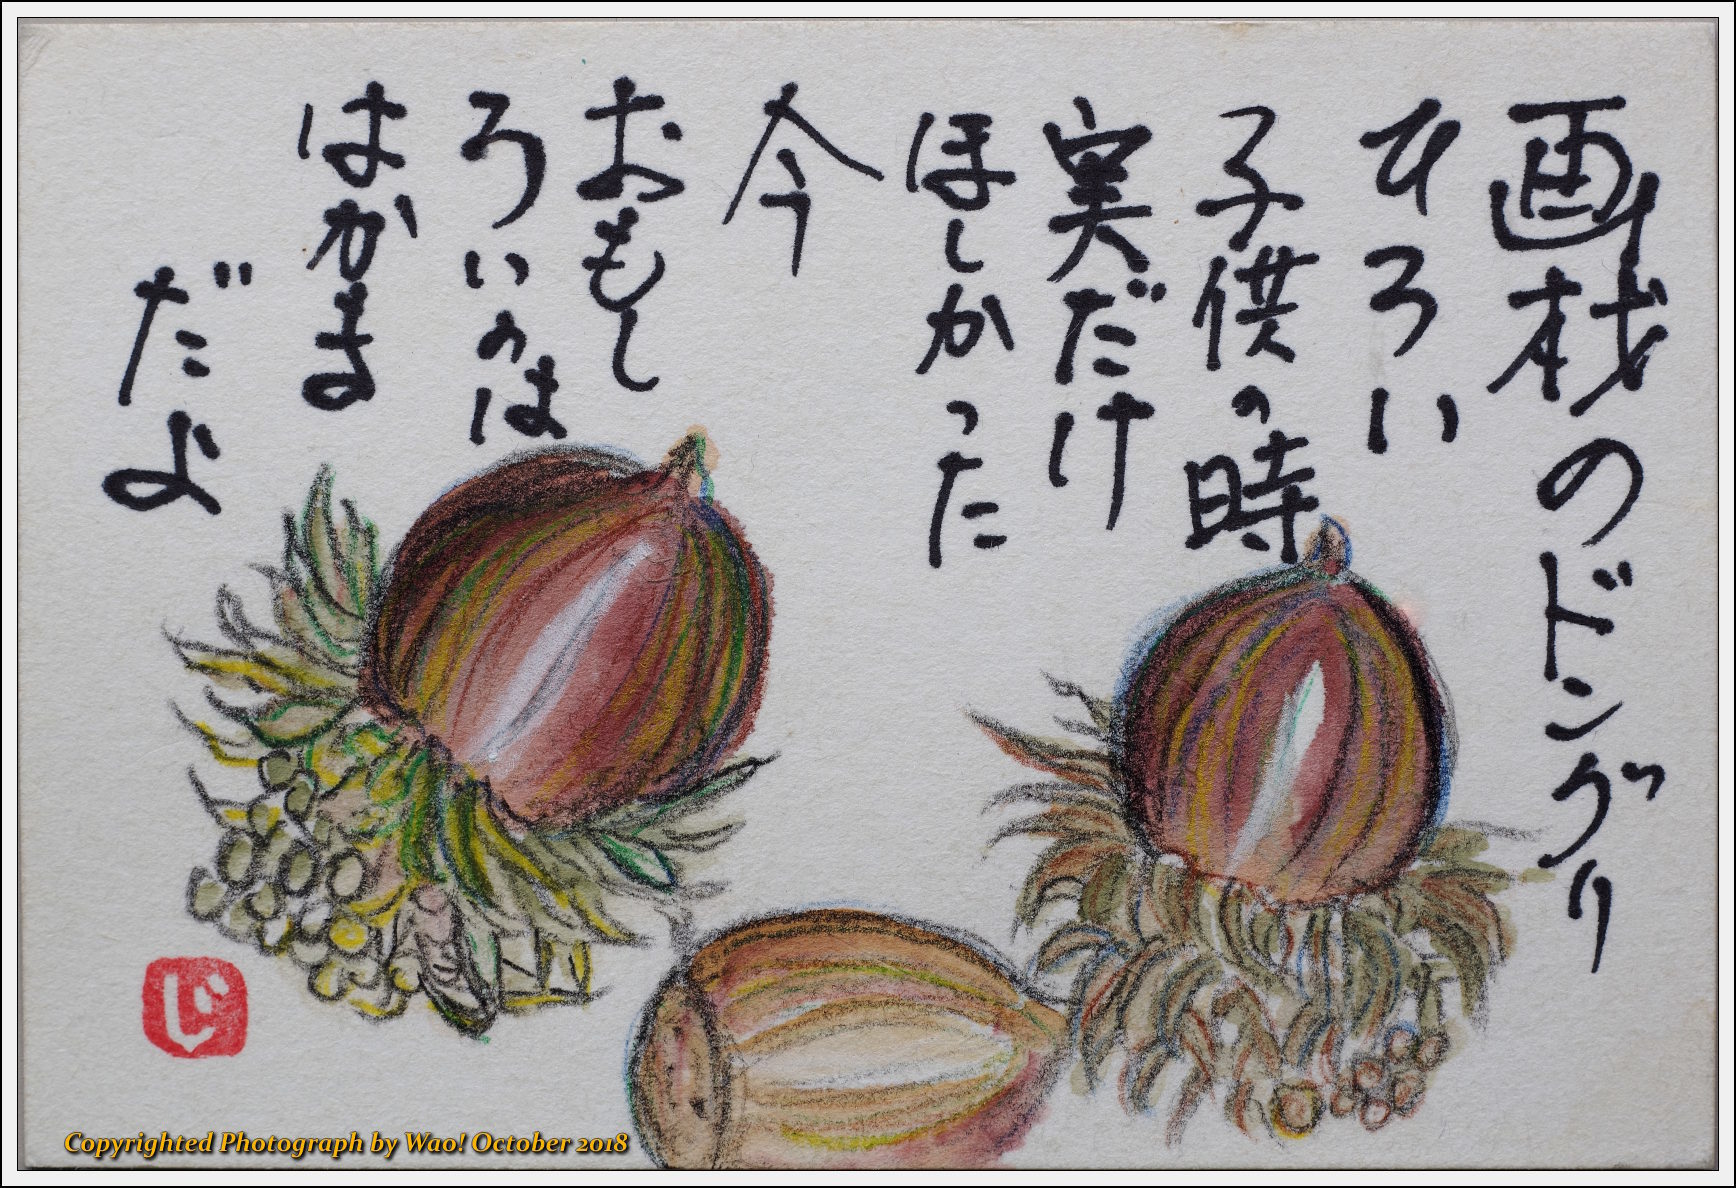 画材のドングリ
ひろい
子供の時
実だけ
ほしかった
今
おもし
ろいのは
はかま
だよ
じ
Copyrighted Photograph by Wao! October 2018